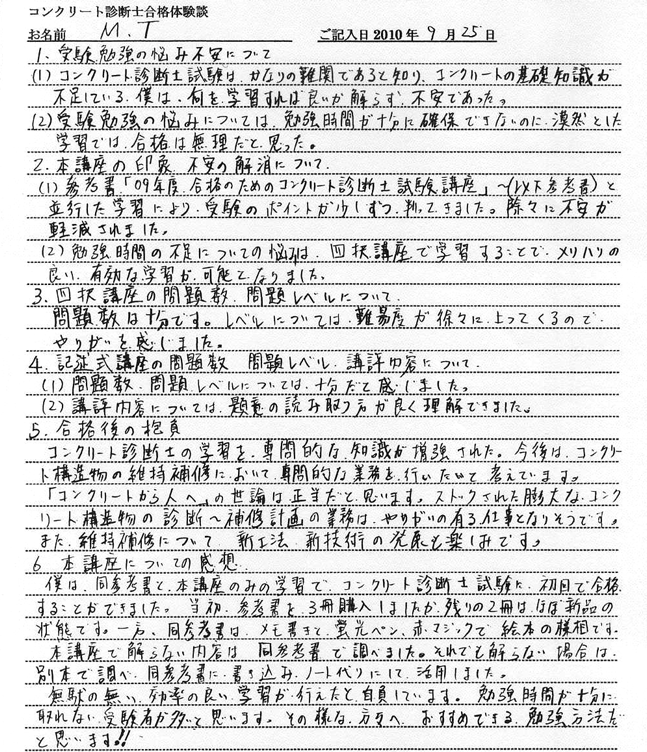 コンクリート診断士合格体験談
お名前 M.T ご記入日 2010 年 9 月 25 日
1. 受験勉強の悩み不安について
(1) コンクリート診断士試験は、かなりの難関であると知り、コンクリートの基礎知識が
不足している僕は、何を学習すれば良いか解らず、不安であった。
(2) 受験勉強の悩みについては、勉強時間が十分に確保できないのに、漠然とした
学習では、合格は無理だと思った。
2. 本講座の印象、不安の解消について
(1) 参考書「09年度 合格のためのコンクリート診断士試験講座」〜(以下参考書)と
並行した学習により、受験のポイントが少しずつ、判ってきました。除々に不安が
軽減されました。
(2) 勉強時間の不足についての悩みは、四択講座で学習することで、メリハリの
良い、有効な学習が、可能となりました。
3. 四択講座の問題数、問題レベルについて
問題数は十分です。レベルについては、難易度が徐々に上ってくるので、
やりがいを感じました。
4. 記述式講座の問題数、問題レベル、講評内容について
(1) 問題数、問題レベルについては、十分だと感じました。
(2) 講評内容については、題意の読み取り方が良く理解できました。
5. 合格後の抱負
コンクリート診断士の学習を、専問的な知識が増強された。今後は、コンクリー
ト構造物の維持補修において、専問的な業務を行いたいと考えています。
「コンクリートから人へ」の世論は正当だと思います。ストックされた膨大な、コンク
リート構造物の診断〜補修計画の業務は、やりがいの有る仕事となりそうです。
また、維持補修について、新工法、新技術の発展も楽しみです。
6. 本講座についての感想
僕は、同参考書と、本講座のみの学習で、コンクリート診断士試験に、初回で合格
することができました。当初、参考書を、3冊購入しましたが、残りの2冊は、ほぼ新品の
状態です。一方、同参考書は、メモ書きと、蛍光ペン、赤マジックで、絵本の様相です。
本講座で解らない内容は、同参考書で調べました。それでも解らない場合は、
別本で調べ、同参考書に、書き込み、ノート代りにして、活用しました。
無駄の無い、効率の良い、学習が、行えたと自負しています。勉強時間が十分に、
取れない受験者が多いと思います。その様な方々へ、おすすめできる、勉強方法だ
と思います!!